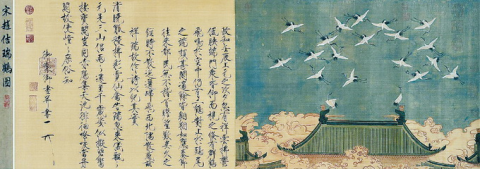 政和壬辰上元之次夕忽有祥雲拂鬱
低映端門衆皆仰而視之倏有群鶴
飛鳴於空中仍有二鶴對止於鴟尾
之端頗甚閒適餘皆翱翔如應奏節
往來都民無不稽首瞻望歎異久之
經時不散迤邐歸飛西北隅散感茲
祥瑞故作詩以紀其實
清曉觚稜拂彩霓仙禽告瑞忽來儀飄飄
元是三山侶兩兩還呈千歲姿似擬碧鸞
棲寶閣豈同赤雁集天池徘徊嘹唳當丹闕
故使憧憧庶俗知
御製御畫並書
宋趙佶瑞鶴圖